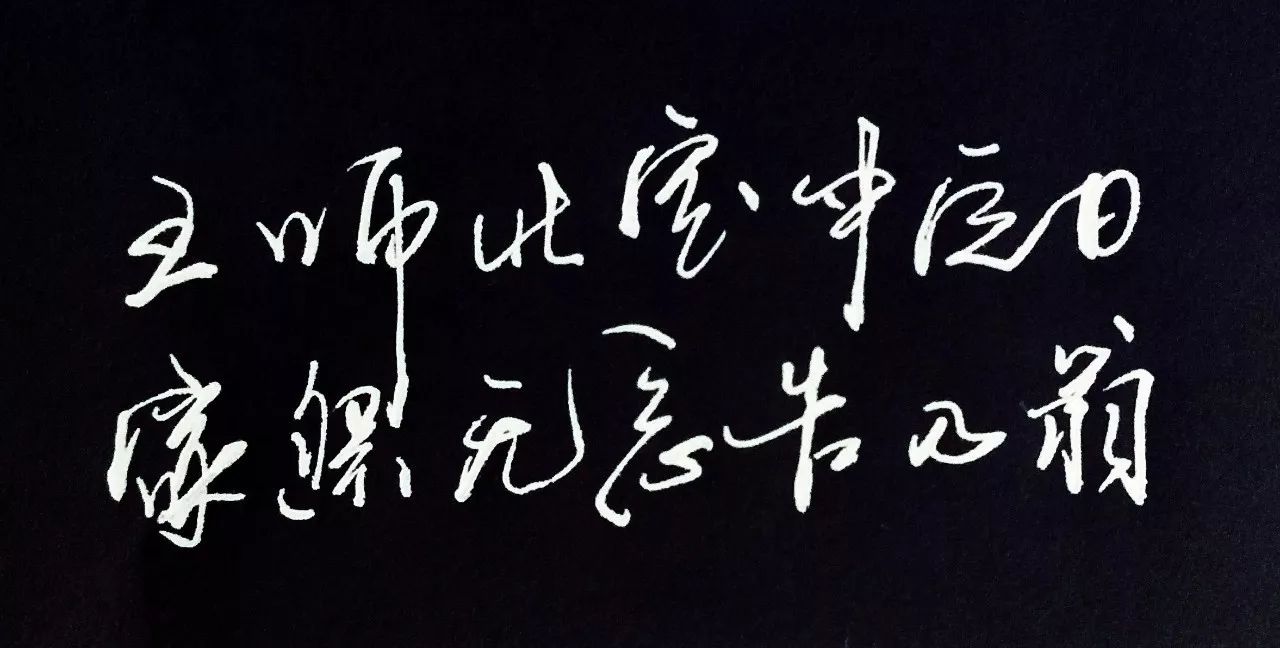 王师北定中原日
家祭无忘告乃翁